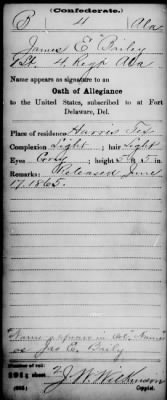 (Confederate.)
B 4 Ala
James E Baily
4 Regt Ala
Name appears as signature to an
Oath of Allegiance
to the United States, subscribed to at Fort
Delaware, Del.
Place of residence Harris Tex
Complexion Light; hair Light
Eyes Grey; height 5 ft 5 in.
Remarks: Released June
17, 1865.
Name appears in
as Jas E. Baily
Number of roll:
sheet
J. W. Wilkinson
Copyist.